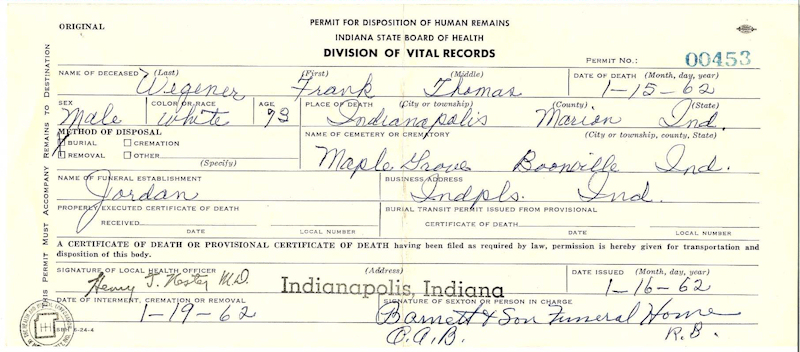 ORIGINAL
PERMIT FOR DISPOSITION OF HUMAN REMAINS
INDIANA STATE BOARD OF HEALTH
DIVISION OF VITAL RECORDS
PERMIT NO.: 00453
NAME OF DECEASED (Last) (First) (Middle) DATE OF DEATH (Month, day, year)
Wegener Frank Thomas 1-15-62
SEX COLOR OR RACE AGE PLACE OF DEATH (City or township) (County) (State)
Male White 73 Indianapolis Marion Ind.
METHOD OF DISPOSAL NAME OF CEMETERY OR CREMATORY (City or township, county, State)
BURIAL CREMATION
REMOVAL OTHER
(Specify)
Maple Grove Boonville Ind.
NAME OF FUNERAL ESTABLISHMENT BUSINESS ADDRESS
Jordan Indpls. Ind.
PROPERLY EXECUTED CERTIFICATE OF DEATH BURIAL TRANSIT PERMIT ISSUED FROM PROVISIONAL
RECEIVED CERTIFICATE OF DEATH
DATE LOCAL NUMBER DATE LOCAL NUMBER
A CERTIFICATE OF DEATH OR PROVISIONAL CERTIFICATE OF DEATH having been filed as required by law, permission is hereby given for transportation and
disposition of this body.
SIGNATURE OF LOCAL HEALTH OFFICER (Address) DATE ISSUED (Month, day, year)
Henry J. Nester M.D. Indianapolis, Indiana 1-16-62
DATE OF INTERMENT, CREMATION OR REMOVAL SIGNATURE OF SEXTON OR PERSON IN CHARGE
1-19-62 Barnett & Son Funeral Home
C.A.B. R.B.
THIS PERMIT MUST ACCOMPANY REMAINS TO DESTINATION